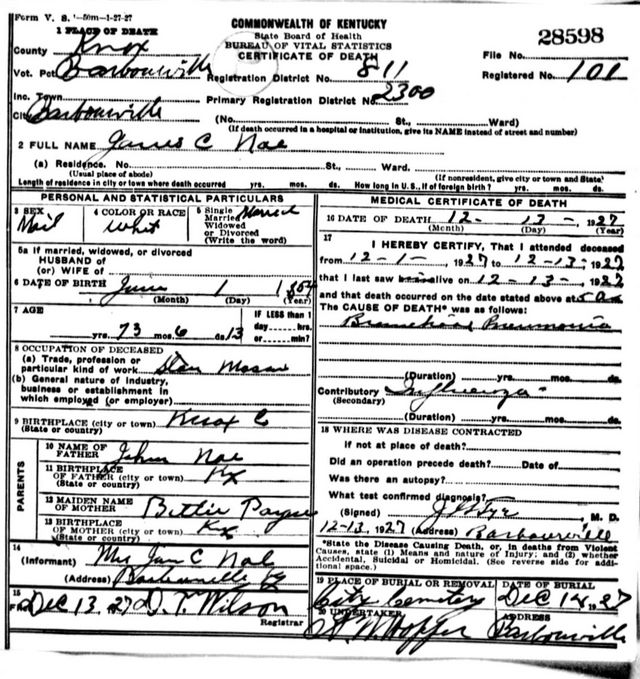 Form V. S. 1-50m-1-27-27
COMMONWEALTH OF KENTUCKY
State Board of Health
BUREAU OF VITAL STATISTICS
CERTIFICATE OF DEATH
28598
File No.
Registered No. 101
1 PLACE OF DEATH
County Knox
Vot. Pct. Barbourville
Registration District No. 811
Inc. Town
Primary Registration District No. 2300
City Barbourville (No. St., Ward)
(If death occurred in a hospital or institution, give its NAME instead of street and number)
2 FULL NAME James C Noe
(a) Residence. No. St., Ward.
(Usual place of abode) (If nonresident, give city or town and State)
Length of residence in city or town where death occurred yrs. mos. ds. How long in U. S., if of foreign birth? yrs. mos. ds.
PERSONAL AND STATISTICAL PARTICULARS
3 SEX Mail
4 COLOR OR RACE Whit
5 Single Married Widowed or Divorced (Write the word) Married
5a If married, widowed, or divorced
HUSBAND of
(or) WIFE of
6 DATE OF BIRTH June 1
(Month) (Day) (Year)
7 AGE
yrs. 73 mos. 6 ds. 13
IF LESS than 1
day hrs.
or min.
8 OCCUPATION OF DECEASED
(a) Trade, profession or
particular kind of work
(b) General nature of industry,
business or establishment in
which employed (or employer)
9 BIRTHPLACE (city or town) Knox C
(State or country)
PARENTS
10 NAME OF
FATHER John Noe
11 BIRTHPLACE
OF FATHER (city or town) Ky
(State or country)
12 MAIDEN NAME
OF MOTHER Bettie Payne
13 BIRTHPLACE
OF MOTHER (city or town) Ky
(State or country)
14
(Informant) Mrs C Noe
(Address) Barbourville Ky
15
Dec 13, 27 D. T. Wilson
Registrar
MEDICAL CERTIFICATE OF DEATH
16 DATE OF DEATH 12- 13- 1927
(Month) (Day) (Year)
17
I HEREBY CERTIFY, That I attended deceased
from 12-1-, 1927 to 12-13-, 1927
that I last saw alive on 12-13-, 1927
and that death occurred on the date stated above at 5 a
The CAUSE OF DEATH* was as follows:
Bronchial Pneumonia
(Duration) yrs. mos. ds.
Contributory Influenza
(Secondary)
(Duration) yrs. mos. ds.
18 WHERE WAS DISEASE CONTRACTED
If not at place of death?
Did an operation precede death? Date of
Was there an autopsy?
What test confirmed diagnosis?
(Signed) M. D.
12-13, 1927 (Address) Barbourville
*State the Disease Causing Death, or, in deaths from Violent
Causes, state (1) Means and nature of Injury; and (2) whether
Accidental, Suicidal or Homicidal. (See reverse side for addi-
tional space.)
19 PLACE OF BURIAL OR REMOVAL DATE OF BURIAL
City Cemetery Dec 14 1927
20 UNDERTAKER ADDRESS
Hopper Barbourville